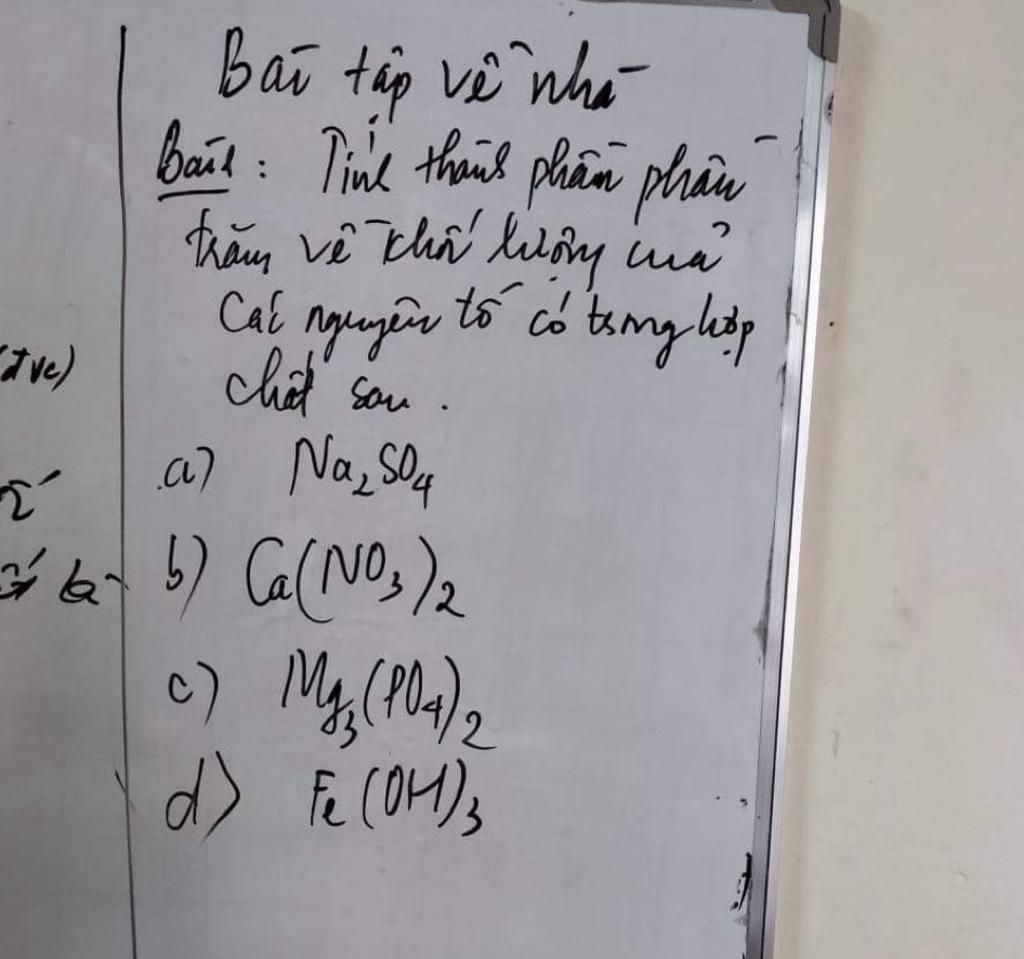 Bài tập về nhà
Bài 1: Tính thành phần phần
trăm về khối lượng của
các nguyên tố có trong hợp
chất sau.
a) Na₂SO₄
b) Ca(NO₃)₂
c) Mg₃(PO₄)₂
d) Fe(OH)₃
(đvc)